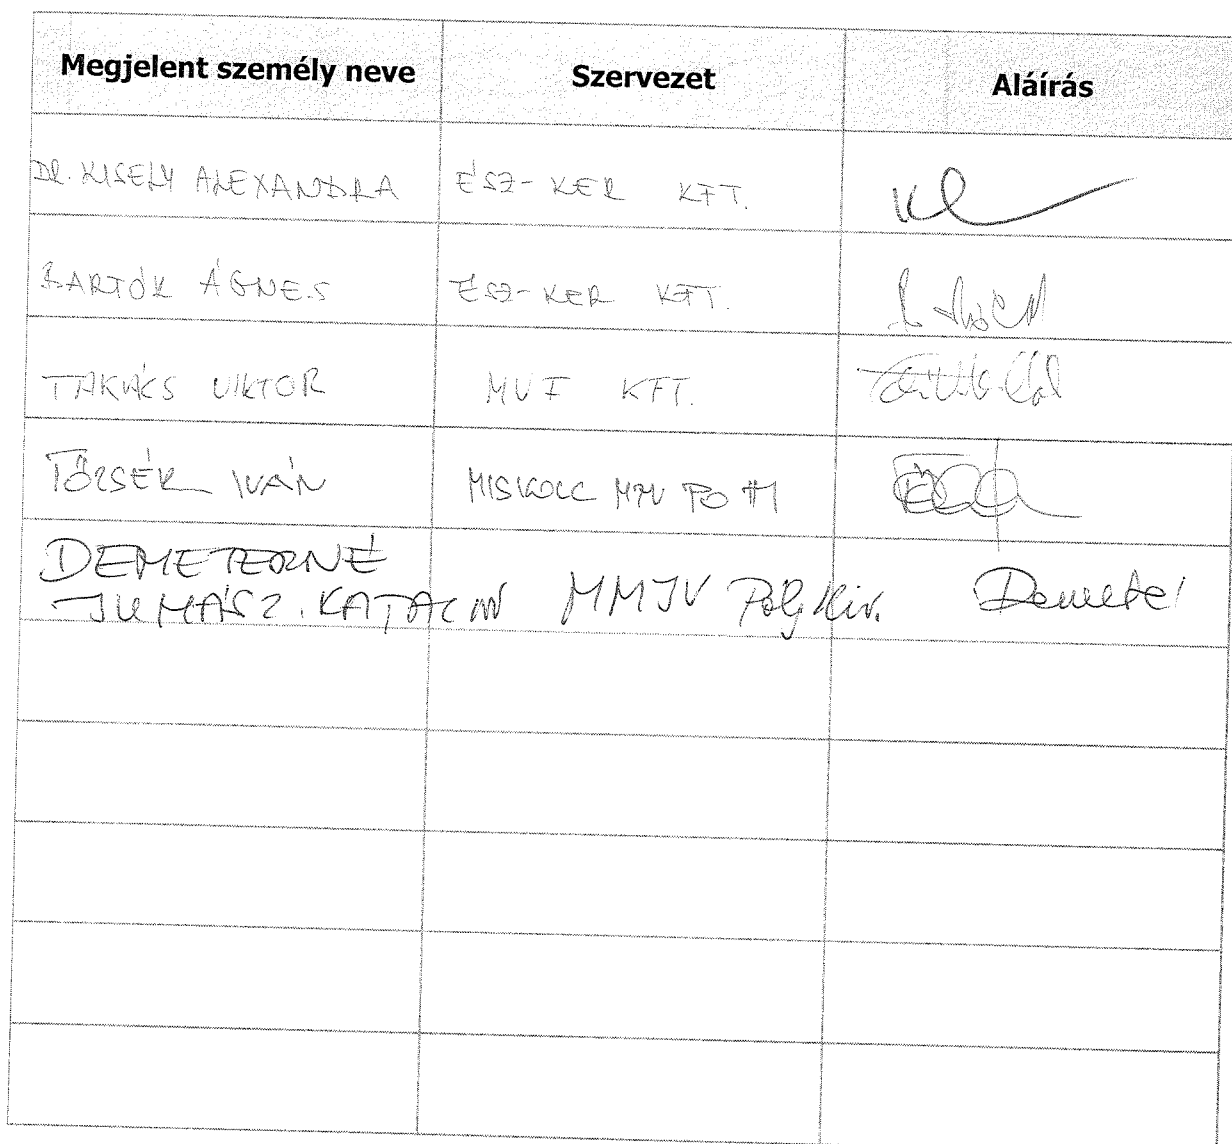 Megjelent személy neve Szervezet Aláírás
DR. KISELY ALEXANDRA ÉSZ-KER KFT.
BARTÓK ÁGNES ÉSZ-KER KFT.
TAKÁCS VIKTOR MVF KFT.
TŐZSÉR IVÁN MISKOLC
DEMETERNÉ
JUHÁSZ KATALIN MMJV Polg Hiv. Demeter